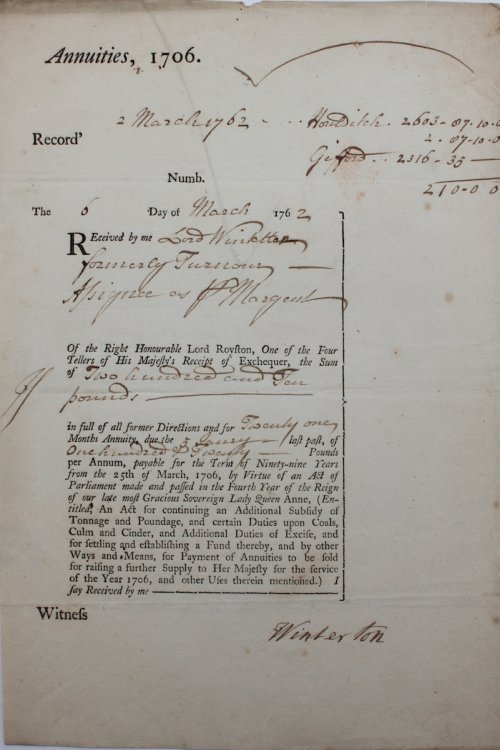 Annuities, 1706.
2 March 1762 - .. Howditch . 2603 - 87-10-0
2 - 87-10-0
Record'
Gifford .. 2316 - 35 —
210-0 0
Numb.
The 6 Day of March 1762
REceived by me Lord Winterton
formerly Turnour —
Assignee as p Margent
Of the Right Honourable Lord Royſton, One of the Four
Tellers of His Majeſty's Receipt of Exchequer, the Sum
of Two hundred and Ten
pounds —
in full of all former Directions and for Twenty one
Months Annuity, due the 5 Janry — laſt paſt, of
One hundred & Twenty — Pounds
per Annum, payable for the Term of Ninety-nine Years
from the 25th of March, 1706, by Virtue of an Act of
Parliament made and paſſed in the Fourth Year of the Reign
of our late moſt Gracious Sovereign Lady Queen Anne, (En-
titled, An Act for continuing an Additional Subſidy of
Tonnage and Poundage, and certain Duties upon Coals,
Culm and Cinder, and Additional Duties of Exciſe, and
for ſettling and eſtabliſhing a Fund thereby, and by other
Ways and Means, for Payment of Annuities to be ſold
for raiſing a further Supply to Her Majeſty for the ſervice
of the Year 1706, and other Uſes therein mentioned.) I
ſay Received by me —
Witneſs
Winterton